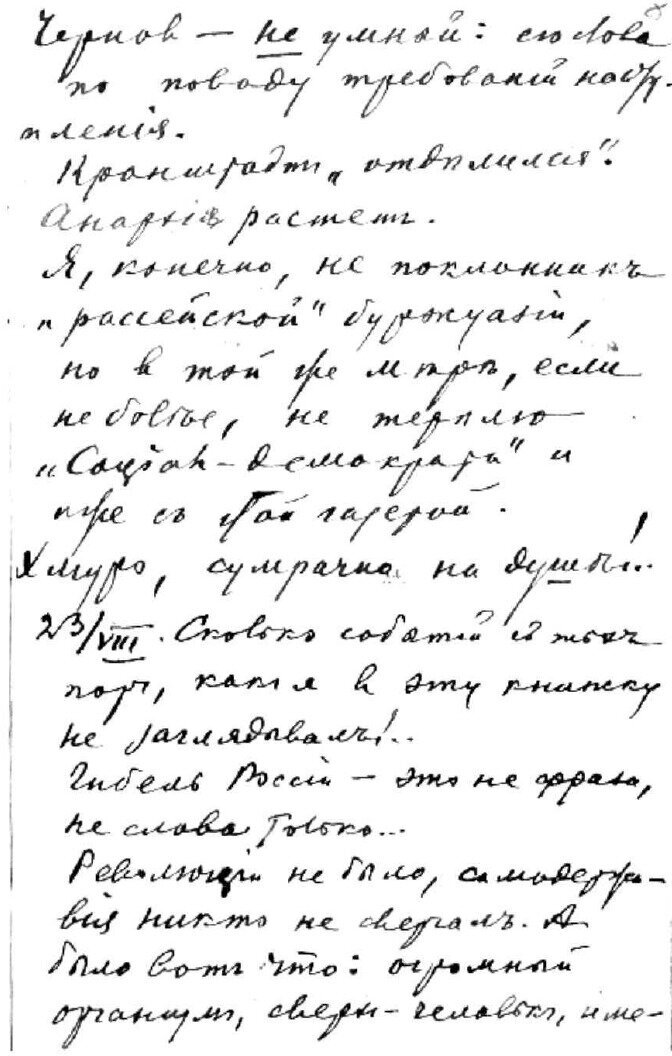 Чернов — не умный: слова
по поводу требованій насту-
пленія.
Кронштадтъ „отдѣлился".
Анархія растетъ.
Я, конечно, не поклонникъ
„рассейской" буржуазіи,
но в той же мѣрѣ, если
не болѣе, не терплю
„Соціал-демократа" и
иже съ той газетой.
Хмуро, сумрачно на душѣ!..
23/VIII. Сколько событій съ тѣхъ
поръ, какъ я в эту книжку
не заглядывалъ!..
Гибель Россіи — это не фраза,
не слова только...
Революціи не было, самодержа-
вія никто не свергалъ. А
было вотъ что: огромный
организмъ, сверх-человѣкъ, име-